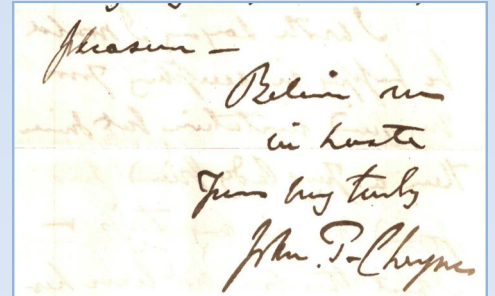 pleasure —
Believe me
in haste
Yours very truly
John P. Cheyne